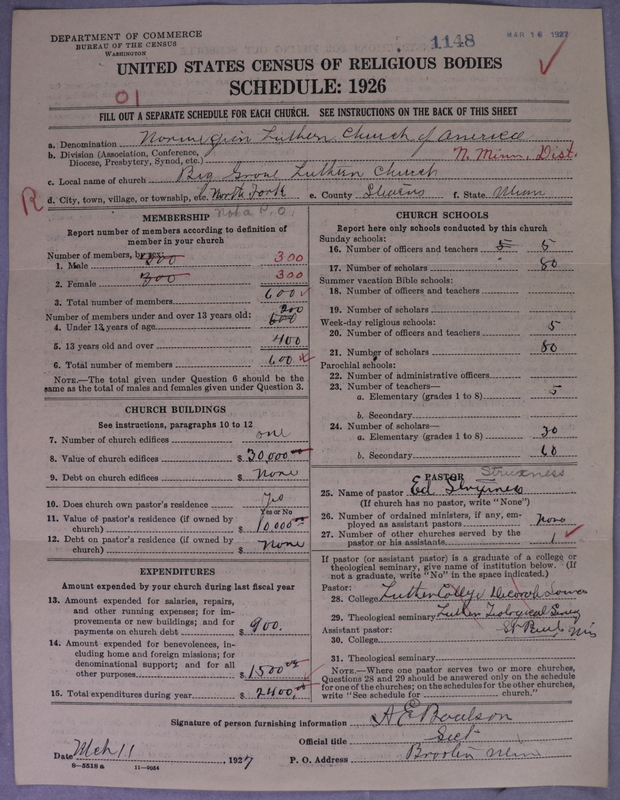 DEPARTMENT OF COMMERCE
BUREAU OF THE CENSUS
WASHINGTON
1148
MAR 16 1927
UNITED STATES CENSUS OF RELIGIOUS BODIES
SCHEDULE: 1926
01
FILL OUT A SEPARATE SCHEDULE FOR EACH CHURCH. SEE INSTRUCTIONS ON THE BACK OF THIS SHEET
a. Denomination Norwegian Luthern Church of America
b. Division (Association, Conference, Diocese, Presbytery, Synod, etc.) N. Minn. Dist.
c. Local name of church Big Grove Luthern Church
R
d. City, town, village, or township, etc. North Fork e. County Stearns f. State Minn
P.O.
MEMBERSHIP
Report number of members according to definition of member in your church
Number of members, by sex:
1. Male 300 300
2. Female 300 300
3. Total number of members 600
Number of members under and over 13 years old:
4. Under 13 years of age 600 200
5. 13 years old and over 400
6. Total number of members 600
NOTE.—The total given under Question 6 should be the same as the total of males and females given under Question 3.
CHURCH BUILDINGS
See instructions, paragraphs 10 to 12
7. Number of church edifices one
8. Value of church edifices $ 30,000
9. Debt on church edifices $ None
10. Does church own pastor's residence Yes
Yes or No
11. Value of pastor's residence (if owned by church) $ 10,000
12. Debt on pastor's residence (if owned by church) $ None
EXPENDITURES
Amount expended by your church during last fiscal year
13. Amount expended for salaries, repairs, and other running expenses; for improvements or new buildings; and for payments on church debt $ 900.
14. Amount expended for benevolences, including home and foreign missions; for denominational support; and for all other purposes $ 1500
15. Total expenditures during year $ 2400.
CHURCH SCHOOLS
Report here only schools conducted by this church
Sunday schools:
16. Number of officers and teachers 5 5
17. Number of scholars 80
Summer vacation Bible schools:
18. Number of officers and teachers
19. Number of scholars
Week-day religious schools:
20. Number of officers and teachers 5
21. Number of scholars 80
Parochial schools:
22. Number of administrative officers
23. Number of teachers—
a. Elementary (grades 1 to 8) 5
b. Secondary
24. Number of scholars—
a. Elementary (grades 1 to 8) 20
b. Secondary 60
PASTOR Struxness
25. Name of pastor Ed Struxness
(If church has no pastor, write "None")
26. Number of ordained ministers, if any, employed as assistant pastors None
27. Number of other churches served by the pastor or his assistants 1
If pastor (or assistant pastor) is a graduate of a college or theological seminary, give name of institution below. (If not a graduate, write "No" in the space indicated.)
Pastor:
28. College Luther College Decorah Iowa
29. Theological seminary Luther
Assistant pastor: St Paul
30. College
31. Theological seminary
NOTE.—Where one pastor serves two or more churches, Questions 28 and 29 should be answered only on the schedule for one of the churches; on the schedules for the other churches, write "See schedule for church."
Signature of person furnishing information A E Boulson
Official title Sect
Date Mch 11, 1927 P. O. Address Brooten Minn
8—5518 a 11—9054